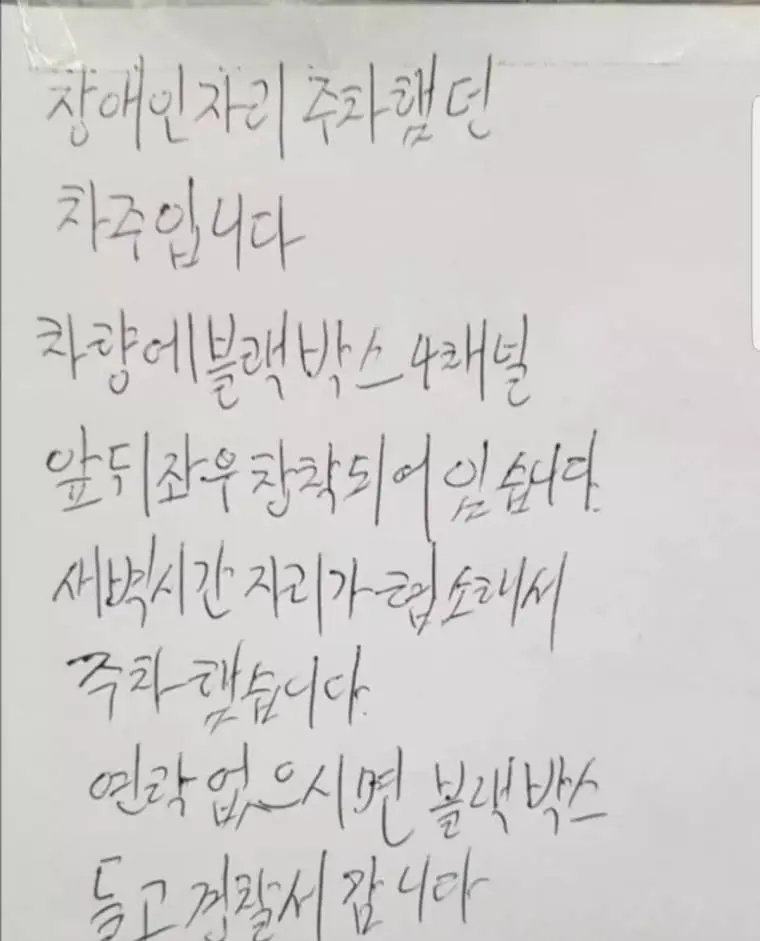 장애인자리 주차했던
차주입니다
차량에 블랙박스 4채널
앞뒤좌우 장착되어 있습니다.
새벽시간 자리가 협소해서
주차 했습니다.
연락 없으시면 블랙박스
들고 경찰서 갑니다